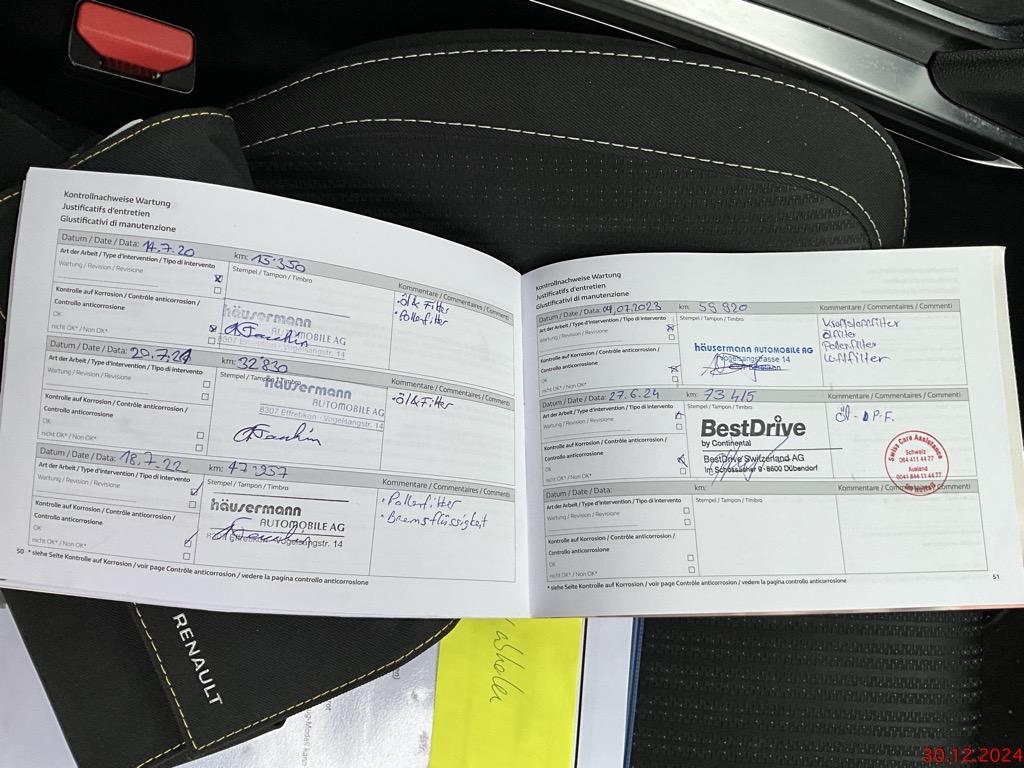 Kontrollnachweise Wartung
Justificatifs d'entretien
Giustificativi di manutenzione
Datum / Date / Data: 14.7.20 km: 15'350 Kommentare / Commentaires / Commenti
Art der Arbeit / Type d'intervention / Tipo di intervento
Stempel / Tampon / Timbro
Wartung / Revision / Revisione
Kontrolle auf Korrosion / Contrôle anticorrosion /
Controllo anticorrosione
OK
nicht OK* / Non OK*
häusermann
AUTOMOBILE AG
• öl & Filter
• Pollenfilter
Datum / Date / Data: 20.7.21 km: 32'830 Kommentare / Commentaires / Commenti
Art der Arbeit / Type d'intervention / Tipo di intervento
Stempel / Tampon / Timbro
Wartung / Revision / Revisione
Kontrolle auf Korrosion / Contrôle anticorrosion /
Controllo anticorrosione
OK
nicht OK* / Non OK*
häusermann
AUTOMOBILE AG
8307 Effretikon - Vogelsangstr. 14
• öl & Filter
Datum / Date / Data: 18.7.22 km: 47'957 Kommentare / Commentaires / Commenti
Art der Arbeit / Type d'intervention / Tipo di intervento
Stempel / Tampon / Timbro
Wartung / Revision / Revisione
Kontrolle auf Korrosion / Contrôle anticorrosion /
Controllo anticorrosione
OK
nicht OK* / Non OK*
häusermann
AUTOMOBILE AG
8307 Effretikon - Vogelsangstr. 14
• Pollenfilter
• Bremsflüssigkeit
50 * siehe Seite Kontrolle auf Korrosion / voir page Contrôle anticorrosion / vedere la pagina controllo anticorrosione
Kontrollnachweise Wartung
Justificatifs d'entretien
Giustificativi di manutenzione
Datum / Date / Data: 04.07.2023 km: 59 920 Kommentare / Commentaires / Commenti
Art der Arbeit / Type d'intervention / Tipo di intervento
Stempel / Tampon / Timbro
Wartung / Revision / Revisione
Kontrolle auf Korrosion / Contrôle anticorrosion /
Controllo anticorrosione
OK
nicht OK* / Non OK*
häusermann AUTOMOBILE AG
Vogelsangstrasse 14
Kraftstoffilter
ölfilter
Pollenfilter
Luftfilter
Datum / Date / Data: 27.6.24 km: 73 415 Kommentare / Commentaires / Commenti
Art der Arbeit / Type d'intervention / Tipo di intervento
Stempel / Tampon / Timbro
Wartung / Revision / Revisione
Kontrolle auf Korrosion / Contrôle anticorrosion /
Controllo anticorrosione
OK
nicht OK* / Non OK*
BestDrive
by Continental
BestDrive Switzerland AG
Im Schossacher 9 - 8600 Dübendorf
Öl - P.F.
Swiss Care Assistance
Schweiz
064 411 44 77
Ausland
Datum / Date / Data: km: Kommentare / Commentaires / Commenti
Art der Arbeit / Type d'intervention / Tipo di intervento
Stempel / Tampon / Timbro
Wartung / Revision / Revisione
Kontrolle auf Korrosion / Contrôle anticorrosion /
Controllo anticorrosione
OK
nicht OK* / Non OK*
* siehe Seite Kontrolle auf Korrosion / voir page Contrôle anticorrosion / vedere la pagina controllo anticorrosione 51
RENAULT
30.12.2024